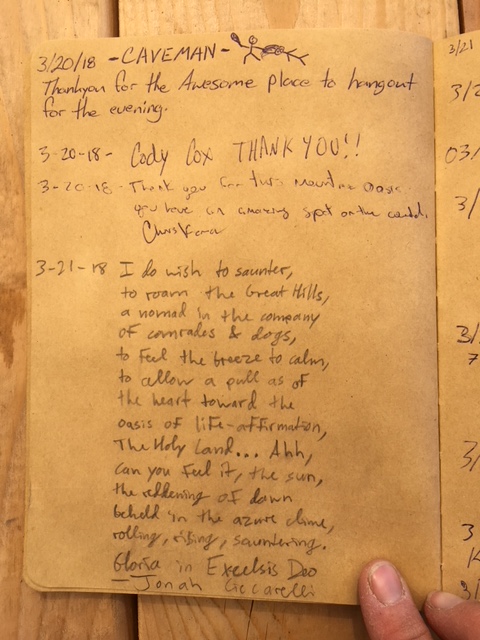 3/20/18 - CAVEMAN -
Thankyou for the Awesome place to hangout
for the evening.
3-20-18- Cody Cox THANK YOU!!
3-20-18 - Thank you for this mountain oasis
you have an amazing spot on the
Chris
3-21-18 I do wish to saunter,
to roam the Great Hills,
a nomad in the company
of comrades & dogs,
to feel the breeze to calm,
to allow a pull as of
the heart toward the
oasis of life-affirmation,
The Holy Land... Ahh,
can you feel it, the sun,
the reddening of dawn
beheld in the azure clime,
rolling, rising, sauntering.
Gloria in Excelsis Deo
- Jonah Ciccarelli
3/21
3/2
03/
3/
3/
7
3/
3
3/